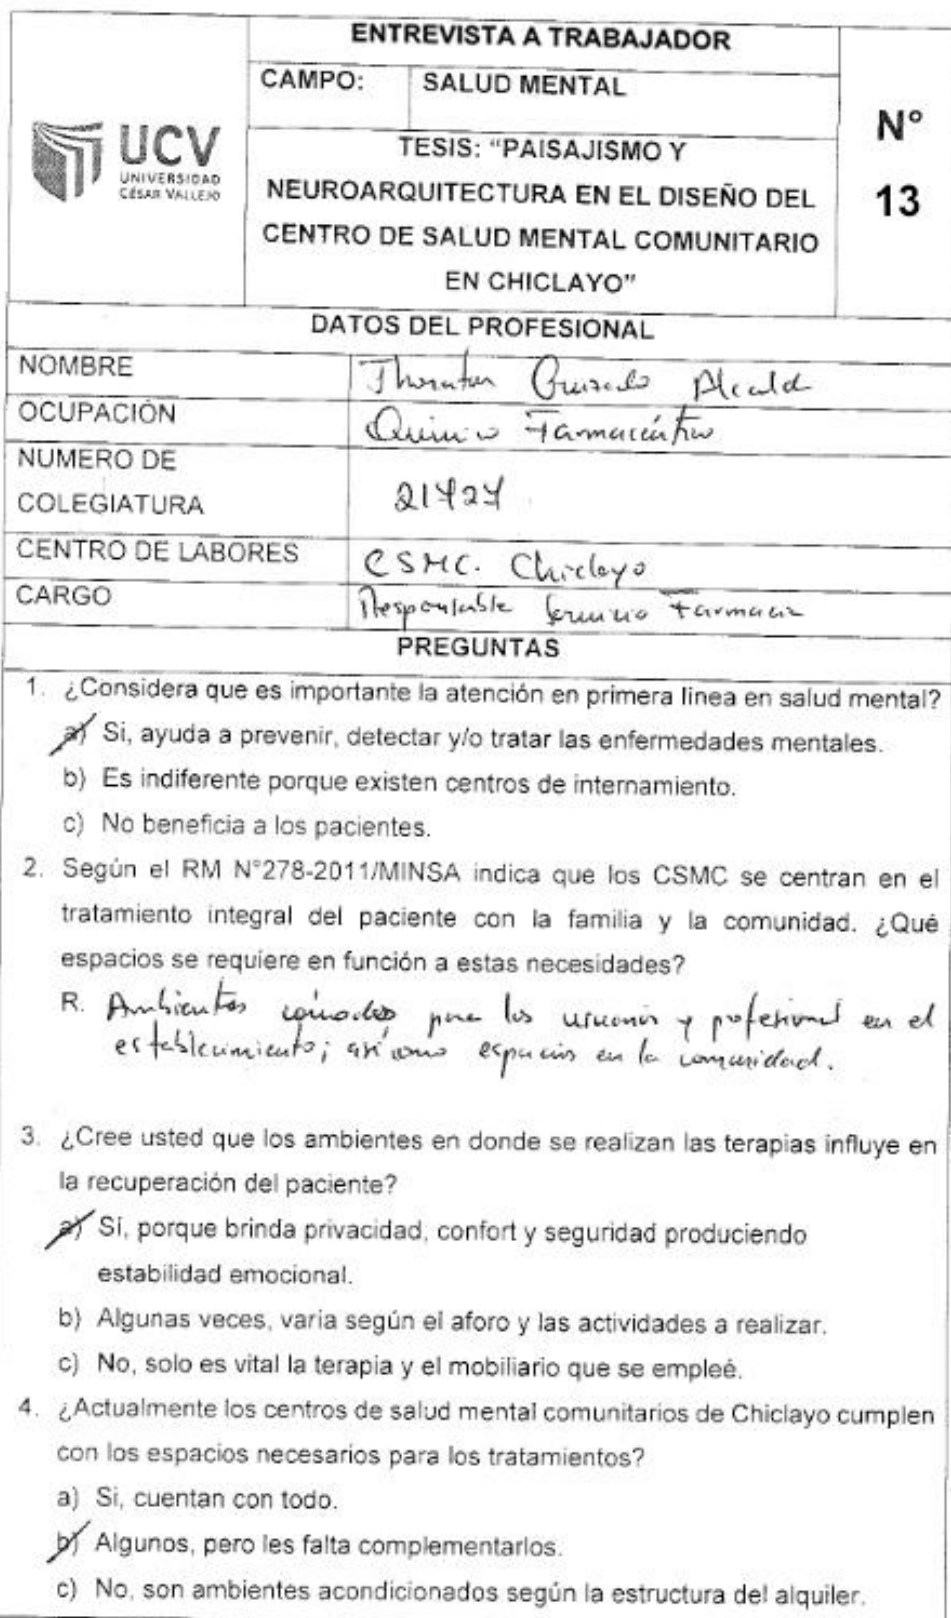 ENTREVISTA A TRABAJADOR
CAMPO: SALUD MENTAL
UCV
UNIVERSIDAD
CÉSAR VALLEJO
TESIS: “PAISAJISMO Y
NEUROARQUITECTURA EN EL DISEÑO DEL
CENTRO DE SALUD MENTAL COMUNITARIO
EN CHICLAYO”
N°
13
DATOS DEL PROFESIONAL
NOMBRE
OCUPACIÓN Químico Farmacéutico
NUMERO DE
COLEGIATURA 21427
CENTRO DE LABORES CSMC. Chiclayo
CARGO Responsable Servicio Farmacia
PREGUNTAS
1. ¿Considera que es importante la atención en primera línea en salud mental?
a) Si, ayuda a prevenir, detectar y/o tratar las enfermedades mentales.
b) Es indiferente porque existen centros de internamiento.
c) No beneficia a los pacientes.
2. Según el RM N°278-2011/MINSA indica que los CSMC se centran en el
tratamiento integral del paciente con la familia y la comunidad. ¿Qué
espacios se requiere en función a estas necesidades?
R. Ambientes cómodos para los usuarios y profesional en el
establecimiento; así como espacios en la comunidad.
3. ¿Cree usted que los ambientes en donde se realizan las terapias influye en
la recuperación del paciente?
a) Sí, porque brinda privacidad, confort y seguridad produciendo
estabilidad emocional.
b) Algunas veces, varia según el aforo y las actividades a realizar.
c) No, solo es vital la terapia y el mobiliario que se empleé.
4. ¿Actualmente los centros de salud mental comunitarios de Chiclayo cumplen
con los espacios necesarios para los tratamientos?
a) Si, cuentan con todo.
b) Algunos, pero les falta complementarlos.
c) No, son ambientes acondicionados según la estructura del alquiler.